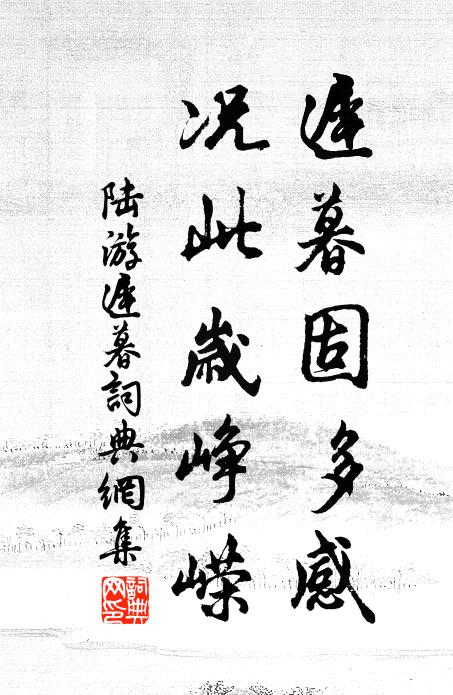 遲暮固多感
况此歲崢嶸
陸游遲暮詞典網集
詞典网印